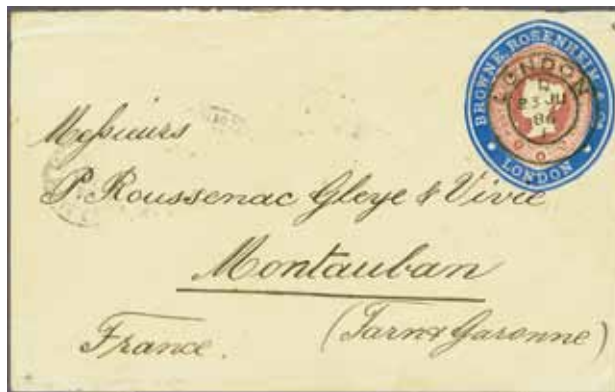 BROWNE, ROSENHEIM & Co.
LONDON
LONDON
23 JU
86
Messieurs
P. Roussenac Gleye & Vivie
Montauban
France. (Tarn & Garonne)